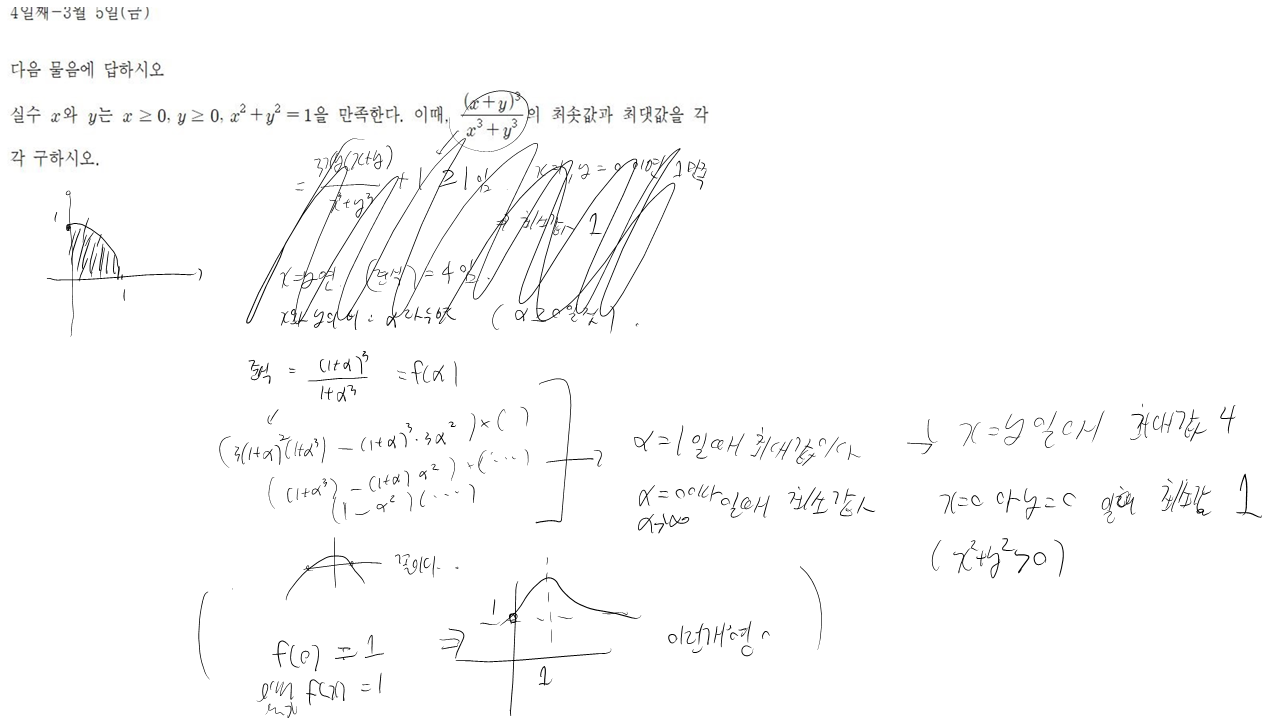 4일째-3월 5일(금)
다음 물음에 답하시오
실수 x와 y는 x ≥ 0, y ≥ 0, x²+y² = 1을 만족한다. 이때, (x+y)³/(x³+y³)의 최솟값과 최댓값을 각
각 구하시오.
= 3xy(x+y)/(x³+y³) + 1 ≥ 1임 y = 0이면 1만족
⇒ 최소값 1
x=y면 (준식) = 4임.
준식 = (1+α)³/(1+α³) = f(α)
(3(1+α)²(1+α³) - (1+α)³·3α²)×( )
((1+α³) - (1+α)α²)×(⋯)
(1-α²)(⋯)
α=1일때 최대값이다
α=0이나 일때 최소값
α→∞
→ x=y일때 최대값 4
x=0 or y=0 일때 최소값 1
(x²+y²>0)
꼴이다..
f(0) = 1
lim f(x) = 1
⇒
1
1
이런개형
1
1